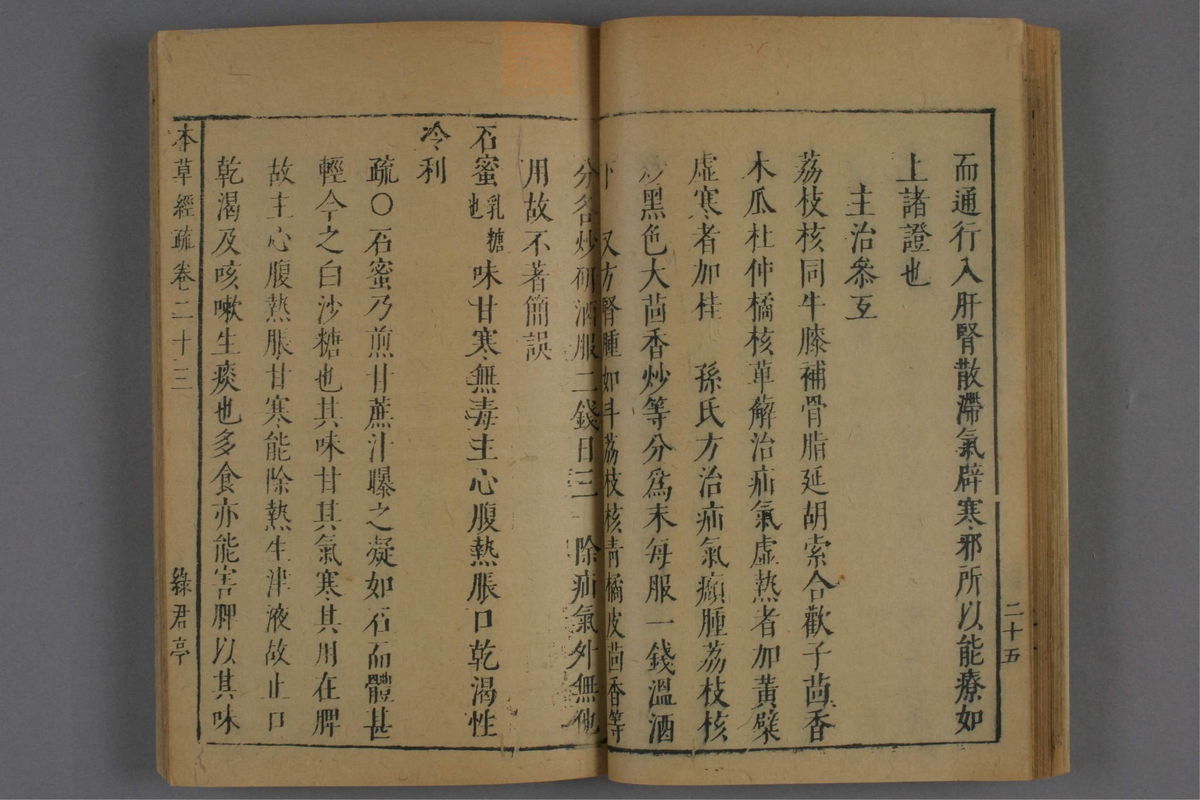 而通行入肝腎散滯氣辟寒邪所以能療如
上諸證也
主治參互
荔枝核同牛膝補骨脂延胡索合歡子茴香
木瓜杜仲橘核萆解治疝氣虛熱者加黃檗
虛寒者加桂　孫氏方治疝氣㿗腫荔枝核
炒黑色大茴香炒等分爲末每服一錢溫酒
下　又方腎腫如斗荔枝核青橘皮茴香等
分各炒研酒服二錢日三　除疝氣外無他
用故不著簡誤
石蜜乳糖也　味甘寒無毒主心腹熱脹口乾渴性
冷利
疏〇石蜜乃煎甘蔗汁曝之凝如石而體甚
輕今之白沙糖也其味甘其氣寒其用在脾
故主心腹熱脹甘寒能除熱生津液故止口
乾渴及咳嗽生痰也多食亦能害脾以其味
二十五
本草經疏卷二十三
綠君亭